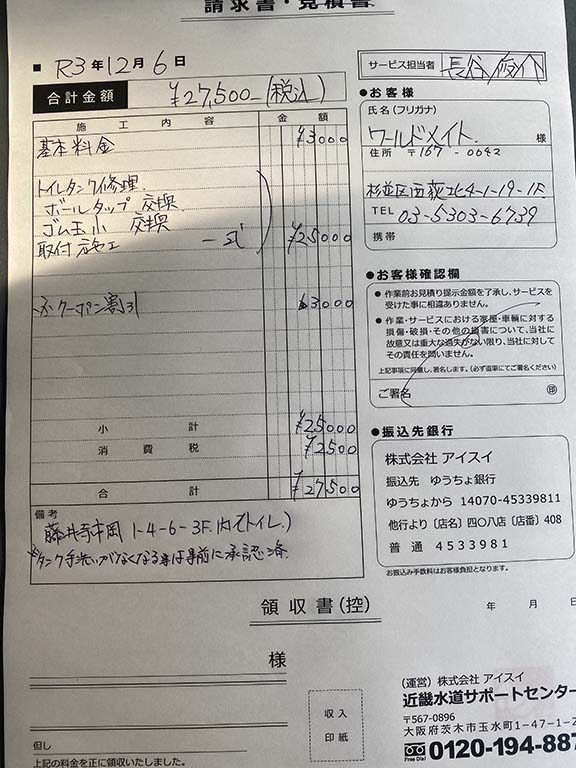 請求書・見積書
■ R3年12月6日
サービス担当者 長谷 俊介
合計金額 ¥27,500-(税込)
施工内容 金額
基本料金 ¥3000
トイレタンク修理
ボールタップ 交換
ゴム玉小 交換
取付施工 一式 ¥25000
※クーポン割引 -3000
小計 ¥25000
消費税 ¥2500
合計 ¥27,500
備考
藤井寺市岡1-4-6-3F.内(トイレ)
※タンク手洗いがなくなる事は事前に承認済.
●お客様
氏名(フリガナ)
ワールドメイト 様
住所 〒167-0042
杉並区西荻北4-1-19-1F
TEL 03-5303-6739
携帯
●お客様確認欄
● 作業前お見積り提示金額を了承し、サービスを
受けた事に相違ありません。
● 作業・サービスにおける家屋・車輌に対する
損傷・破損・その他の損害について、当社に
故意又は重大な過失がない限り、当社に対して
その責任を問いません。
上記事項に同意し、署名します。(必ず直筆にてご署名ください)
ご署名 ㊞
●振込先銀行
株式会社 アイスイ
振込先 ゆうちょ銀行
ゆうちょから 14070-45339811
他行より〔店名〕四〇八店〔店番〕408
普通 4533981
お振込み手数料はお客様負担となります。
領収書(控)
年 月 日
様
但し
上記の料金を正に領収いたしました。
収入
印紙
(運営)株式会社 アイスイ
近畿水道サポートセンター
〒567-0896
大阪府茨木市玉水町1-47-1-2
Free Dial 0120-194-887